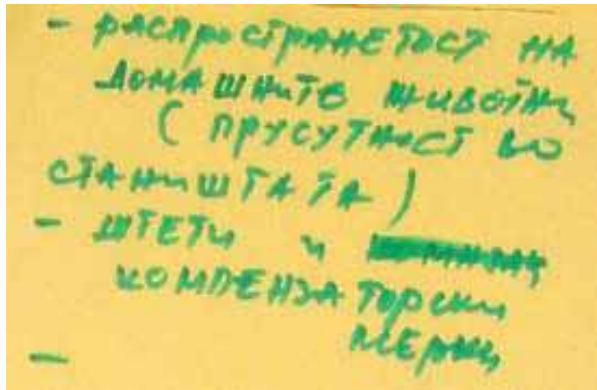 - РАСПРОСТРАНЕТОСТ НА
ДОМАШНИТЕ ЖИВОТНИ
( ПРУСУТНОСТ ВО
СТАНИШТАТА )
- ШТЕТИ И
КОМПЕНЗАТОРСКИ
МЕРКИ
-